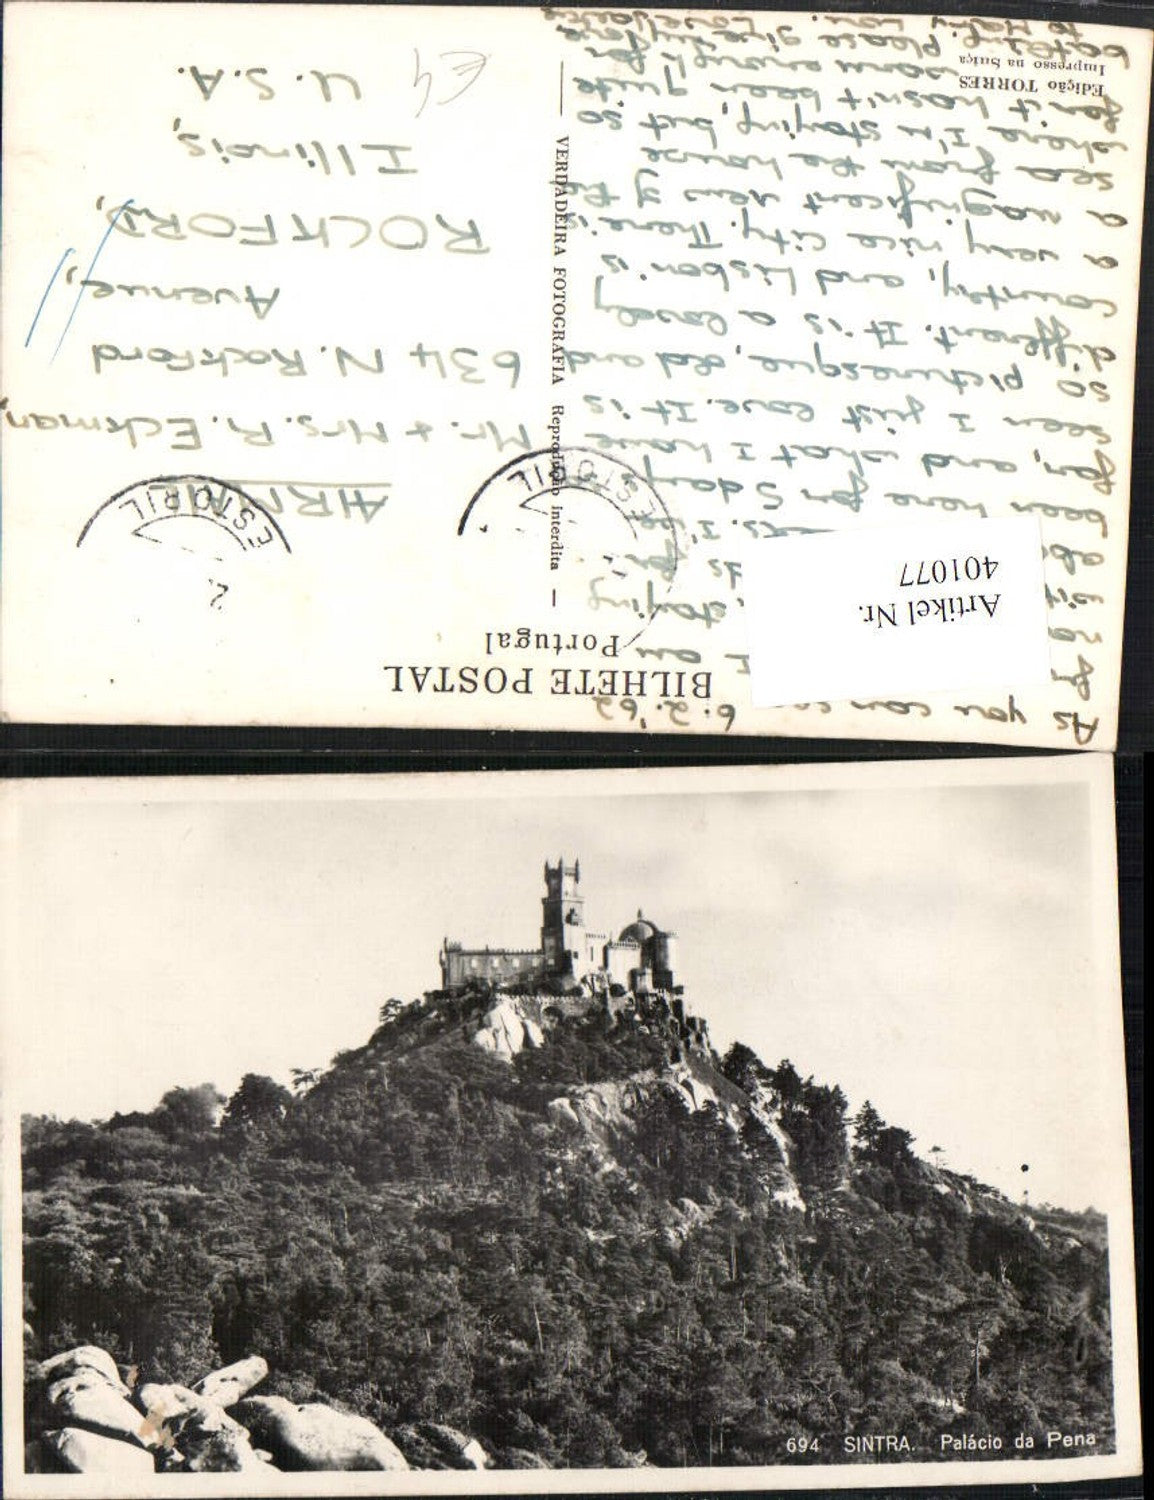 BILHETE POSTAL
Portugal
6.2.'62
As you can
I am
staying
for
I've
been here for 5 days
far, and what I have
seen I just love. It is
so picturesque, old and
different. It is a lovely
country, and Lisbon is
a very nice city. There is
a magnificent view of the
sea from the house
where I'm staying, but so
far it hasn't been quite
warm enough for
bathing. Please give my love
to Mary Lou.
Edição TORRES
Impresso na Suiça
— VERDADEIRA FOTOGRAFIA Reprodução Interdita —
ESTORIL
ESTORIL
2.
AIRMAIL
Mr. & Mrs. R. Eckman,
634 N. Rockford
Avenue,
ROCKFORD,
Illinois,
U.S.A.
€4
Artikel Nr.
401077
694 SINTRA. Palácio da Pena